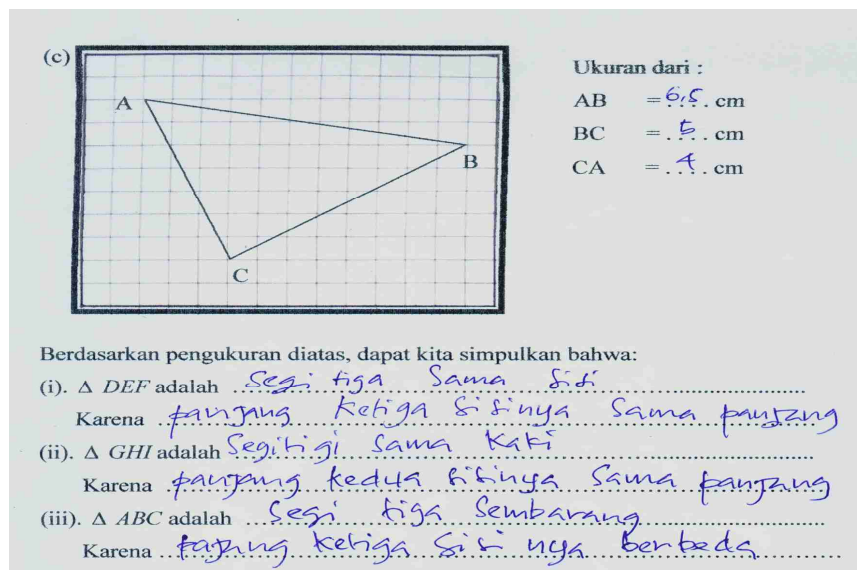 (c)
A
B
C
Ukuran dari :
AB = 6,5 cm
BC = 5 cm
CA = 4 cm
Berdasarkan pengukuran diatas, dapat kita simpulkan bahwa:
(i). Δ DEF adalah segi tiga sama sisi
Karena panjang ketiga sisinya sama panjang
(ii). Δ GHI adalah Segitigi sama kaki
Karena panjang kedua sisinya sama panjang
(iii). Δ ABC adalah segi tiga Sembarang
Karena ketiga sisi nya berbeda